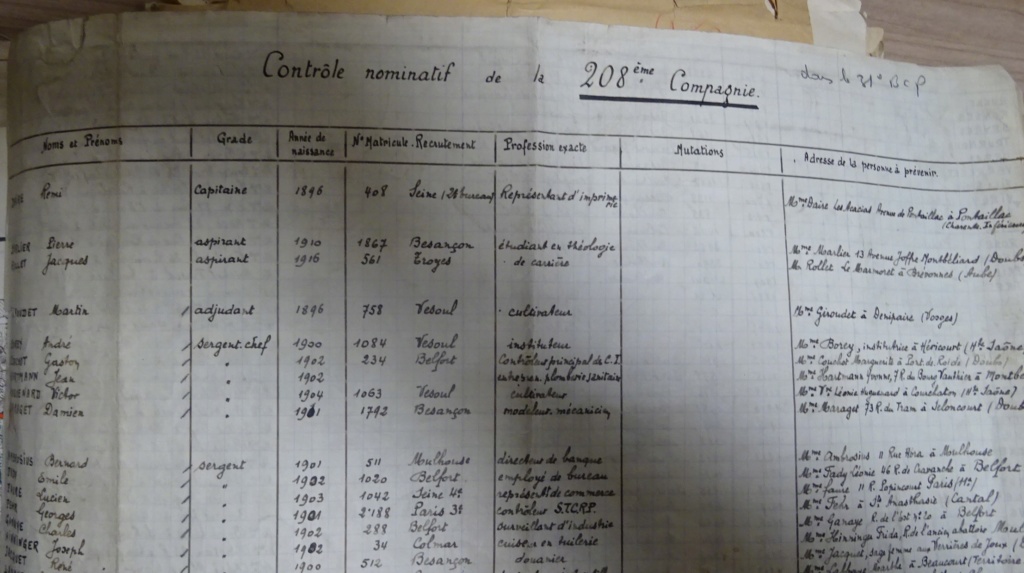 Contrôle nominatif de la 208ème Compagnie.
dans le 31e BCP
Noms et Prénoms Grade Année de naissance N° Matricule. Recrutement Profession exacte Mutations Adresse de la personne à prévenir.
Rémi Capitaine 1896 408 Seine Représentant d'imprimerie Mme Daire Les Acacias Avenue de Pontaillac à Pontaillac
Pierre aspirant 1910 1867 Besançon étudiant en théologie Mme Marlier 13 Avenue Joffre Montbéliard (Doubs
Jacques aspirant 1916 561 Troyes de carrière Mr Rollet Le Marmoret à Brévonnes (Aube)
Martin adjudant 1896 758 Vesoul cultivateur Mme Giroudet à Denipaire (Vosges)
André sergent.chef 1900 1084 Vesoul instituteur Mme Borey, institutrice à Héricourt (Hte Saône
Gaston " 1902 234 Belfort Contrôleur principal de C.I. Marguerite à Pont de Roide (Doubs)
Jean " 1902 plomberie sanitaire Mme Hartmann Yvonne, 7 R. du Bourg Vauthier à Montbé
Victor " 1904 1063 Vesoul cultivateur Mme Vve Léonie à (Hte Saône)
Damien " 1901 1792 Besançon modeleur. mécanicien Mme Maraget 73 R. du Tram à Seloncourt (Doub
Bernard sergent 1901 511 Mulhouse directeur de banque Mme Ambrosius 11 Rue à Moulhouse
Emile " 1902 1020 Belfort employé de bureau Mme Fady 46 R. de Cravanche à Belfort
Lucien " 1903 1042 Seine 4e représt de commerce Mme Faivre 11 R. Popincourt Paris (11e)
Georges " 1901 2188 Paris 3e contrôleur S.T.C.R.P. Mme Fehr à St Anasthasie (Cantal)
Charles " 1902 288 Belfort surveillant d'industrie Mme à Belfort
Joseph " 1902 34 Colmar cuiseur en tuilerie Mme Henninger Frida, R. de l'ancien abattoir
René " 1900 512 Besançon douanier Mme Jacquet, sage femme aux Verrières de Joux
à Beaucourt (Territoire